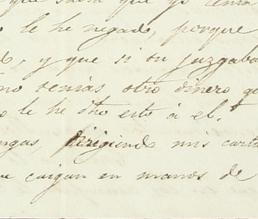 que yo tenía
lo he negado, porque
y que si su juzgaba
no venías otro dinero
le he dho esto à el.
ngas, dirigiendo mis cart
caigan en manos de